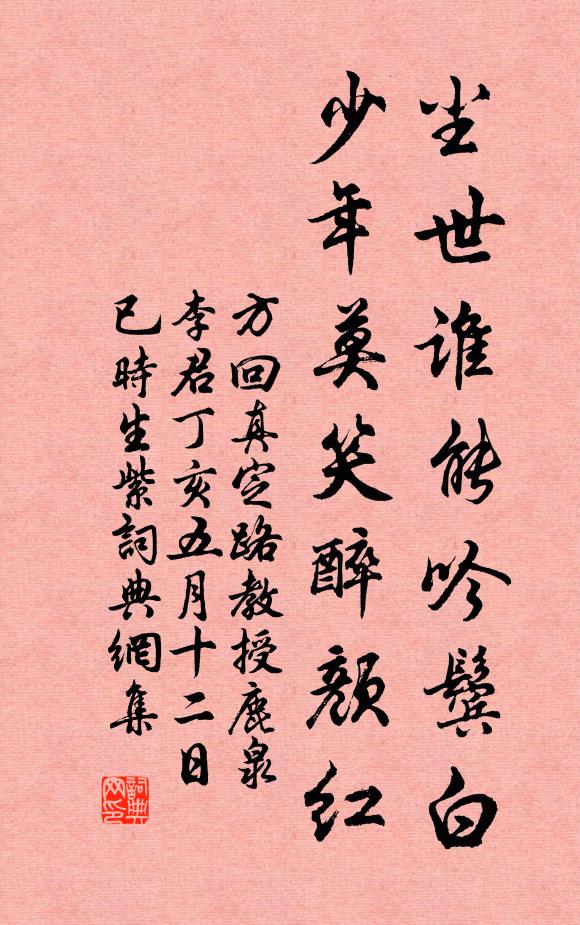 尘世誰能吟鬢白
少年莫笑醉顏紅
方回真定路教授鹿泉
李君丁亥五月十二日
已時生紫詞典網集
詞典网印